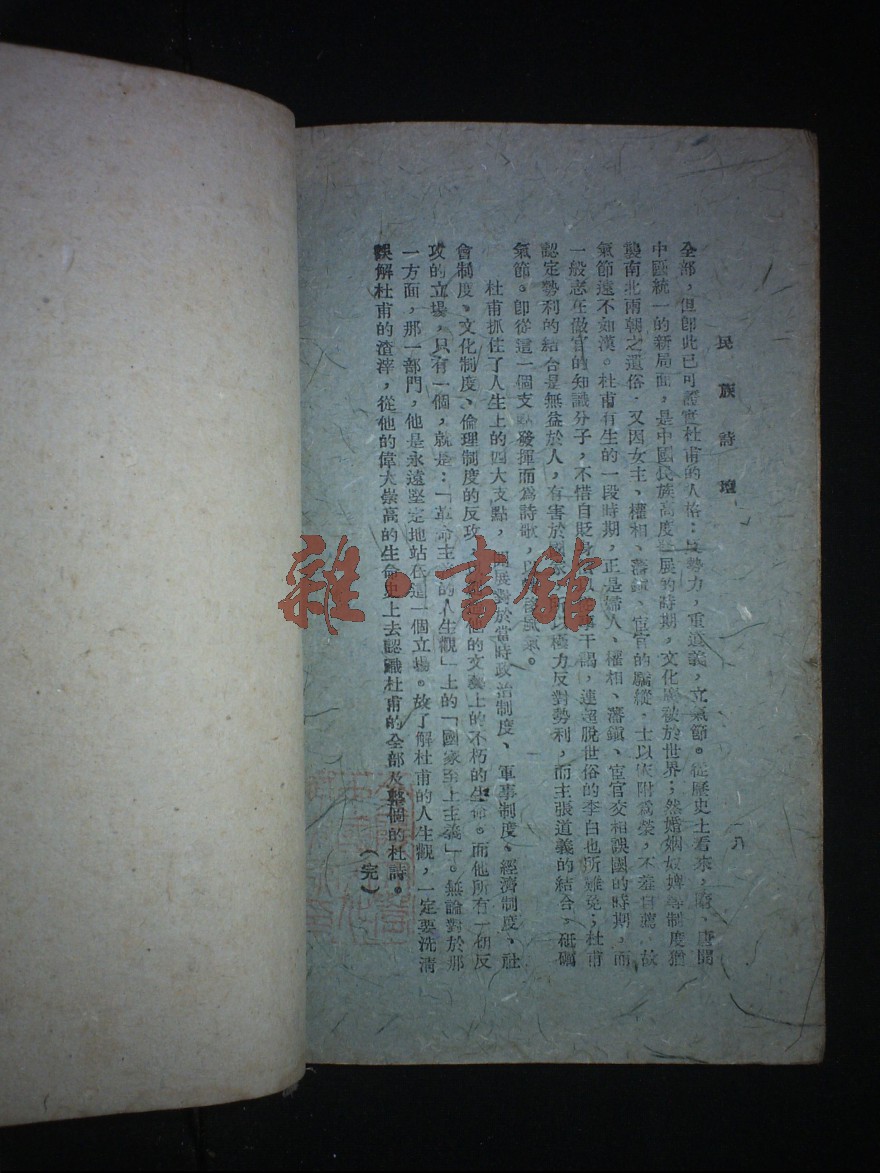 民族詩壇
一八
全部，但卽此已可證定杜甫的人格：反勢力，重道義，立氣節。從歷史上看來，隋、唐開
中國統一的新局面，是中國民族高度發展的時期，文化廣被於世界；然婚姻奴婢等制度猶
襲南北兩朝之遺俗，又因女主、權相、藩鎮、宦官的驕縱，士以依附爲榮，不羞自薦，故
氣節遠不如漢。杜甫有生的一段時期，正是婦人、權相、藩鎮、宦官交相誤國的時期，而
一般志在做官的知識分子，不惜自貶 干謁，連超脫世俗的李白也所難免；杜甫
認定勢利的結合是無益於人，有害於 極力反對勢利，而主張道義的結合。砥礪
氣節。卽從這一個支點發揮而爲詩歌，以 風氣。
杜甫抓住了人生上的四大支點， 展對於當時政治制度、軍事制度、經濟制度、社
會制度、文化制度、倫理制度的反攻， 他的文藝上的不朽的生命。而他所有一切反
攻的立場，只有一個，就是：「革命主義的人生觀」上的「國家至上主義」。無論對於那
一方面，那一部門，他是永遠堅定地站在這一個立場。故了解杜甫的人生觀，一定要洗清
誤解杜甫的渣滓，從他的偉大崇高的生命史上去認識杜甫的全部及整個的杜詩。
（完）
雜·書館